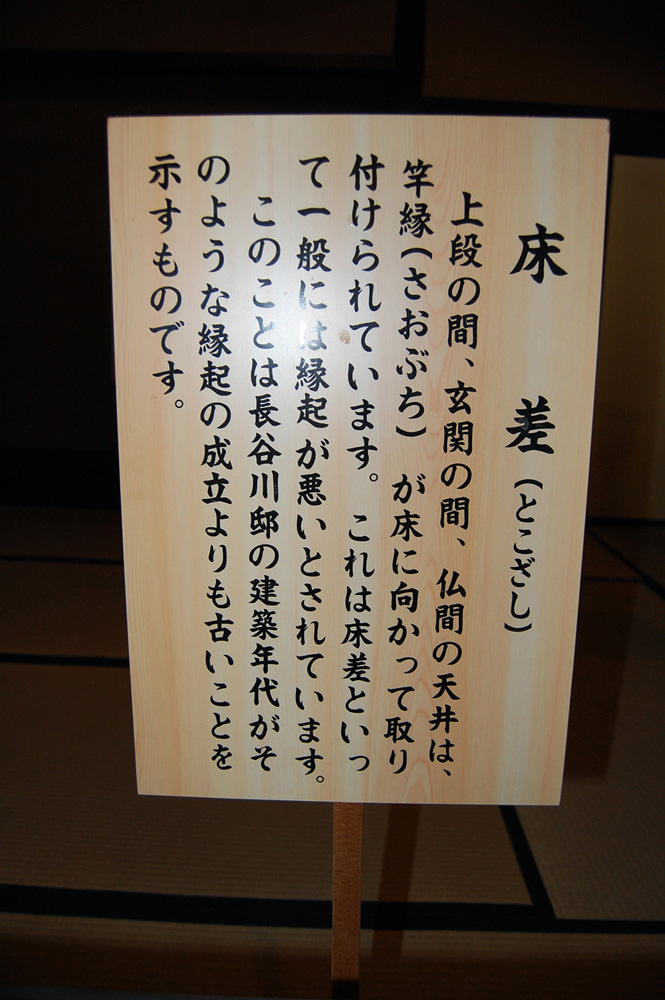 床　差（とこざし）
上段の間、玄関の間、仏間の天井は、
竿縁（さおぶち）が床に向かって取り
付けられています。これは床差といっ
て一般には縁起が悪いとされています。
このことは長谷川邸の建築年代がそ
のような縁起の成立よりも古いことを
示すものです。